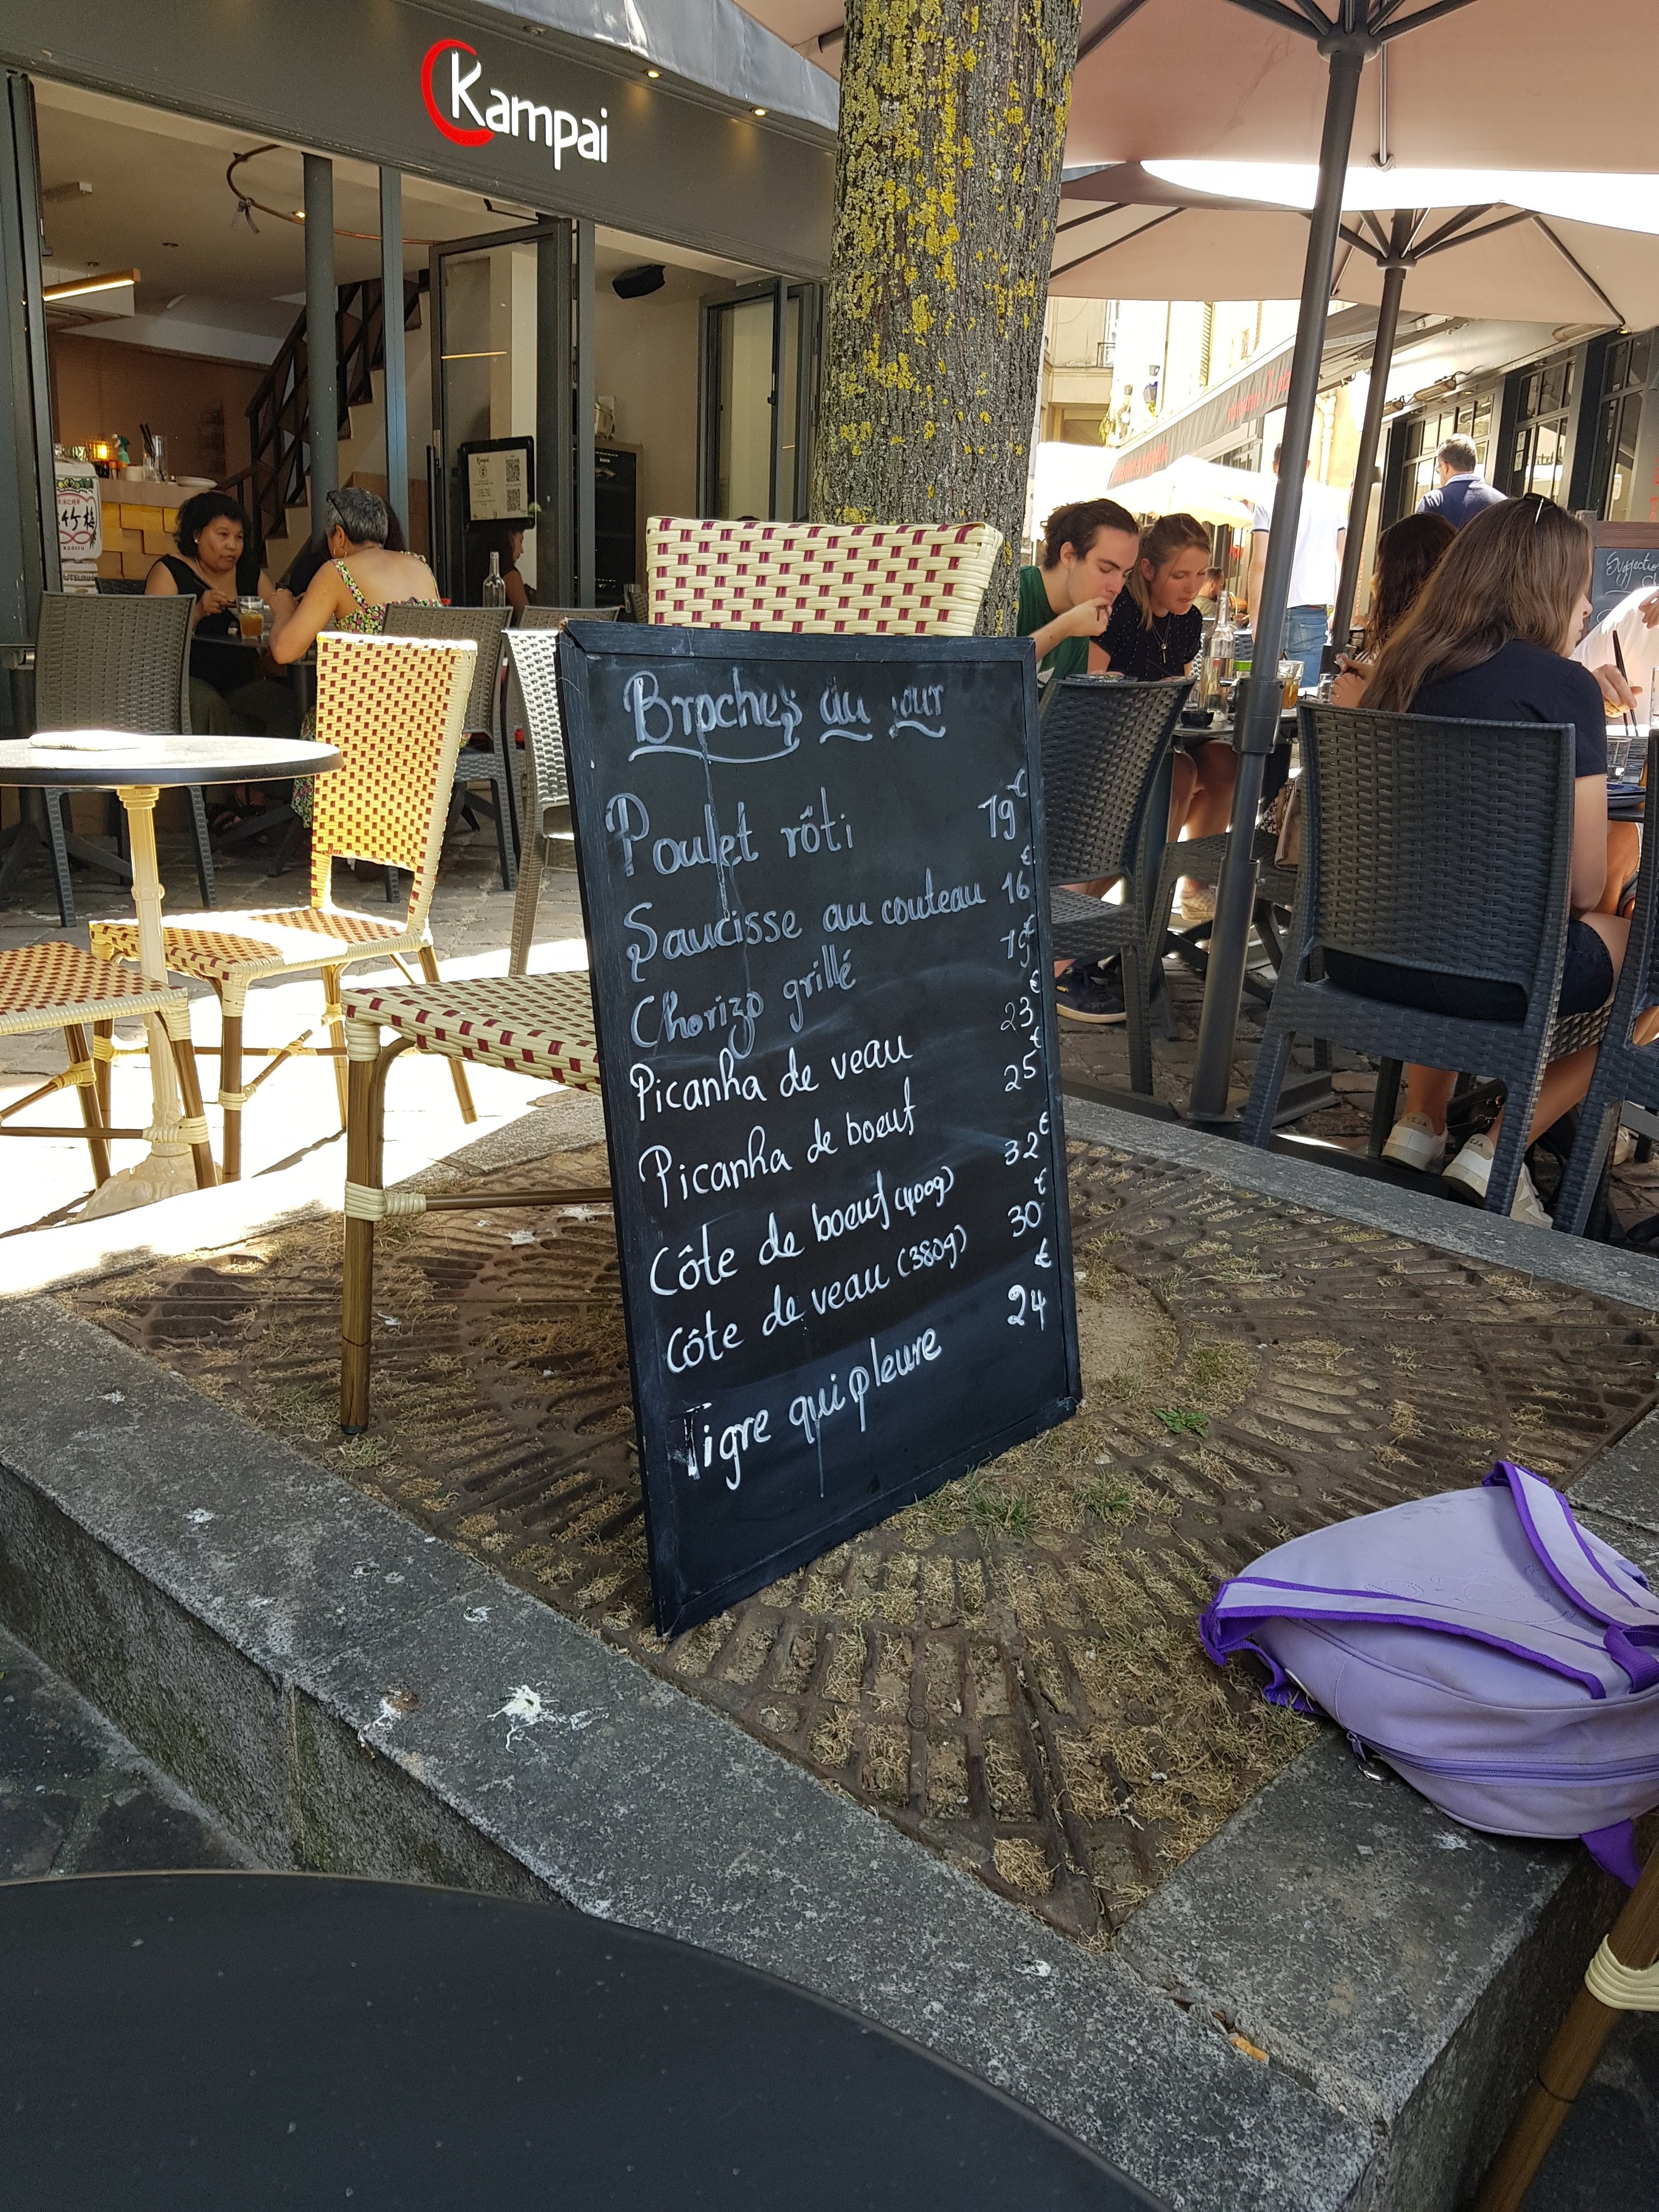 Kampai
Broches du jour
Poulet rôti 19€
Saucisse au couteau 16€
Chorizo grillé 19€
Picanha de veau 23€
Picanha de boeuf 25€
Côte de boeuf (400g) 32€
Côte de veau (380g) 30€
Tigre qui pleure 24€
竹梅
Suggestion